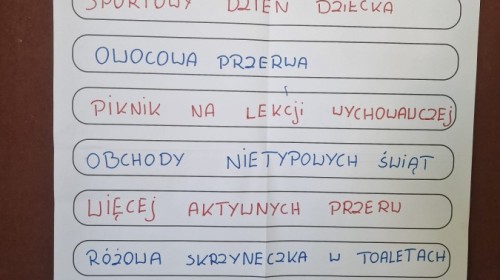 SPORTOWY DZIEŃ DZIECKA
OWOCOWA PRZERWA
PIKNIK NA LEKCJI WYCHOWAWCZEJ
OBCHODY NIETYPOWYCH ŚWIĄT
WIĘCEJ AKTYWNYCH PRZERW
RÓŻOWA SKRZYNECZKA W TOALETACH